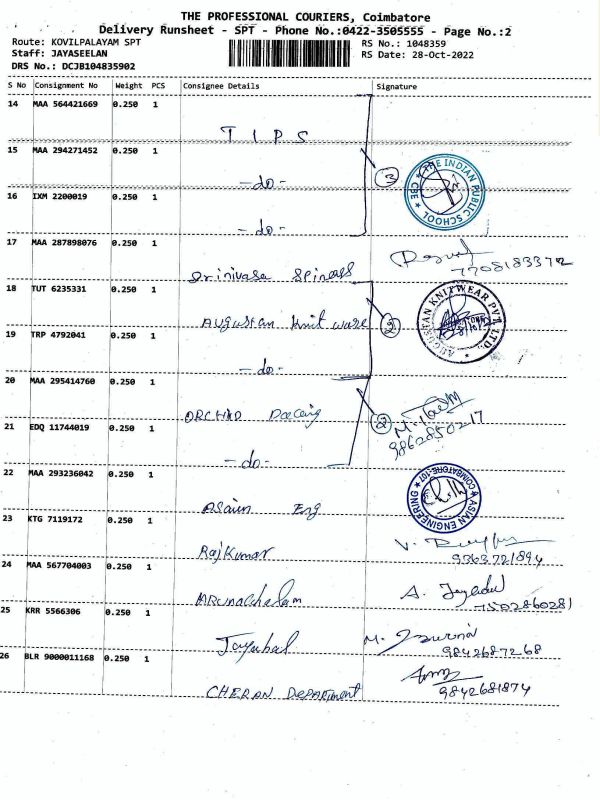 THE PROFESSIONAL COURIERS, Coimbatore
Delivery Runsheet - SPT - Phone No.:0422-3505555 - Page No.:2
Route: KOVILPALAYAM SPT
Staff: JAYASEELAN
DRS No.: DCJB104835902
RS No.: 1048359
RS Date: 28-Oct-2022
S No Consignment No Weight PCS Consignee Details Signature
14 MAA 564421669 0.250 1
TIPS
15 MAA 294271452 0.250 1
-do-
3
THE INDIAN PUBLIC SCHOOL
CBE
16 IXM 2200019 0.250 1
-do-
17 MAA 287898076 0.250 1
Srinivasa Spinners
7708183372
18 TUT 6235331 0.250 1
Augustan knit ware
2
AUGUSTAN KNITWEAR PVT. LTD.
19 TRP 4792041 0.250 1
-do-
20 MAA 295414760 0.250 1
ORCHID
2
9862850217
21 EDQ 11744019 0.250 1
-do-
22 MAA 293236042 0.250 1
Asain Eng
ASIAN ENGINEERING
COIMBATORE-107
23 KTG 7119172 0.250 1
RajKumar
V.
9363721894
24 MAA 567704003 0.250 1
Arunachalam
A.
7502860281
25 KRR 5566306 0.250 1
Jayabal
M.
9842687268
26 BLR 9000011168 0.250 1
CHERAN Department
9842681874